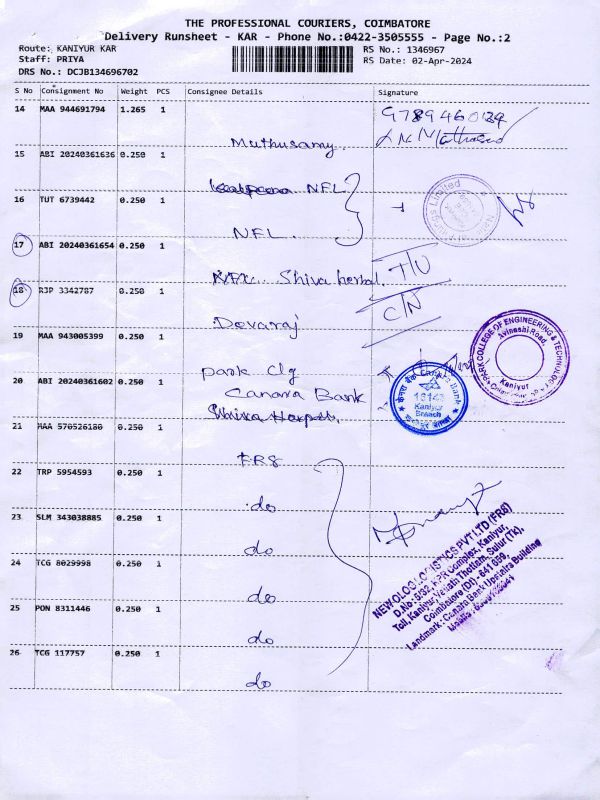 THE PROFESSIONAL COURIERS, COIMBATORE
Delivery Runsheet - KAR - Phone No.:0422-3505555 - Page No.:2
Route: KANIYUR KAR
RS No.: 1346967
Staff: PRIYA
RS Date: 02-Apr-2024
DRS No.: DCJB134696702
S No Consignment No Weight PCS Consignee Details Signature
14 MAA 944691794 1.265 1
Muthusamy.
15 ABI 20240361636 0.250 1
NFL
16 TUT 6739442 0.250 1
NFL.
17 ABI 20240361654 0.250 1
Shiva herbal. T/U
18 RJP 3342787 0.250 1
Devaraj C/N
19 MAA 943005399 0.250 1
Park Clg
PARK COLLEGE OF ENGINEERING & TECHNOLOGY
Avinashi Road,
Kaniyur
20 ABI 20240361602 0.250 1
Canara Bank
Canara Bank
16143
Kaniyur
Branch
21 MAA 570526180 0.250 1
FR8
22 TRP 5954593 0.250 1
do
23 SLM 343038885 0.250 1
do
24 TCG 8029998 0.250 1
do
25 PON 8311446 0.250 1
do
26 TCG 117757 0.250 1
do
NEW OLOG LOGISTICS PVT LTD (FR8)
D.No. 5/32, KPR Complex, Kaniyur,
Toll, Kaniyur, Venath Thottam, Sulur (Tk),
Coimbatore (Dt) - 641 659,
Landmark : Canara Bank Upstairs Building